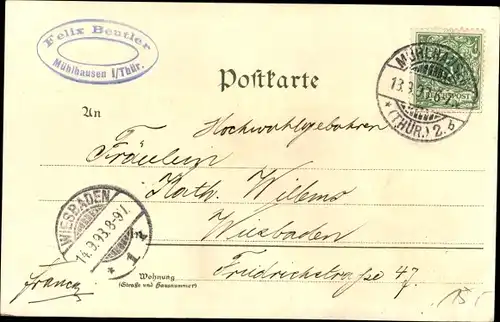 Felix Beutler
Mühlhausen i/Thür.
Postkarte
MÜHLHAUSEN
13.9.93.6-7
* (THÜR.) 2. b
An Hochwohlgeboren
Fräulein
Kath. Willems
WIESBADEN
14.9.93.8-9V.
* 1 *
in Wiesbaden
Wohnung Friedrichstrasse 47.
(Straße und Hausnummer)
franco